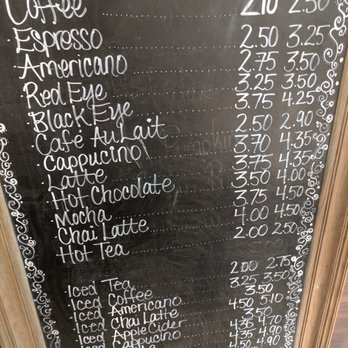 Coffee 2.10 2.50
Espresso 2.50 3.25
Americano 2.75 3.50
Red Eye 3.25 3.50
Black Eye 3.75 4.25
Café Au Lait 2.50 2.90
Cappucino 3.70 4.35
Latte 3.75 4.35
Hot Chocolate 3.50 4.00
Mocha 3.75 4.50
Chai Latte 4.00 4.50
Hot Tea 2.00 2.50
Iced Tea 2.00 2.75
Iced Coffee
Iced Americano 3.25 3.50
Iced Chai Latte 4.50 5.10
Iced Apple Cider 4.35 4.50
Iced Cappucino 4.90